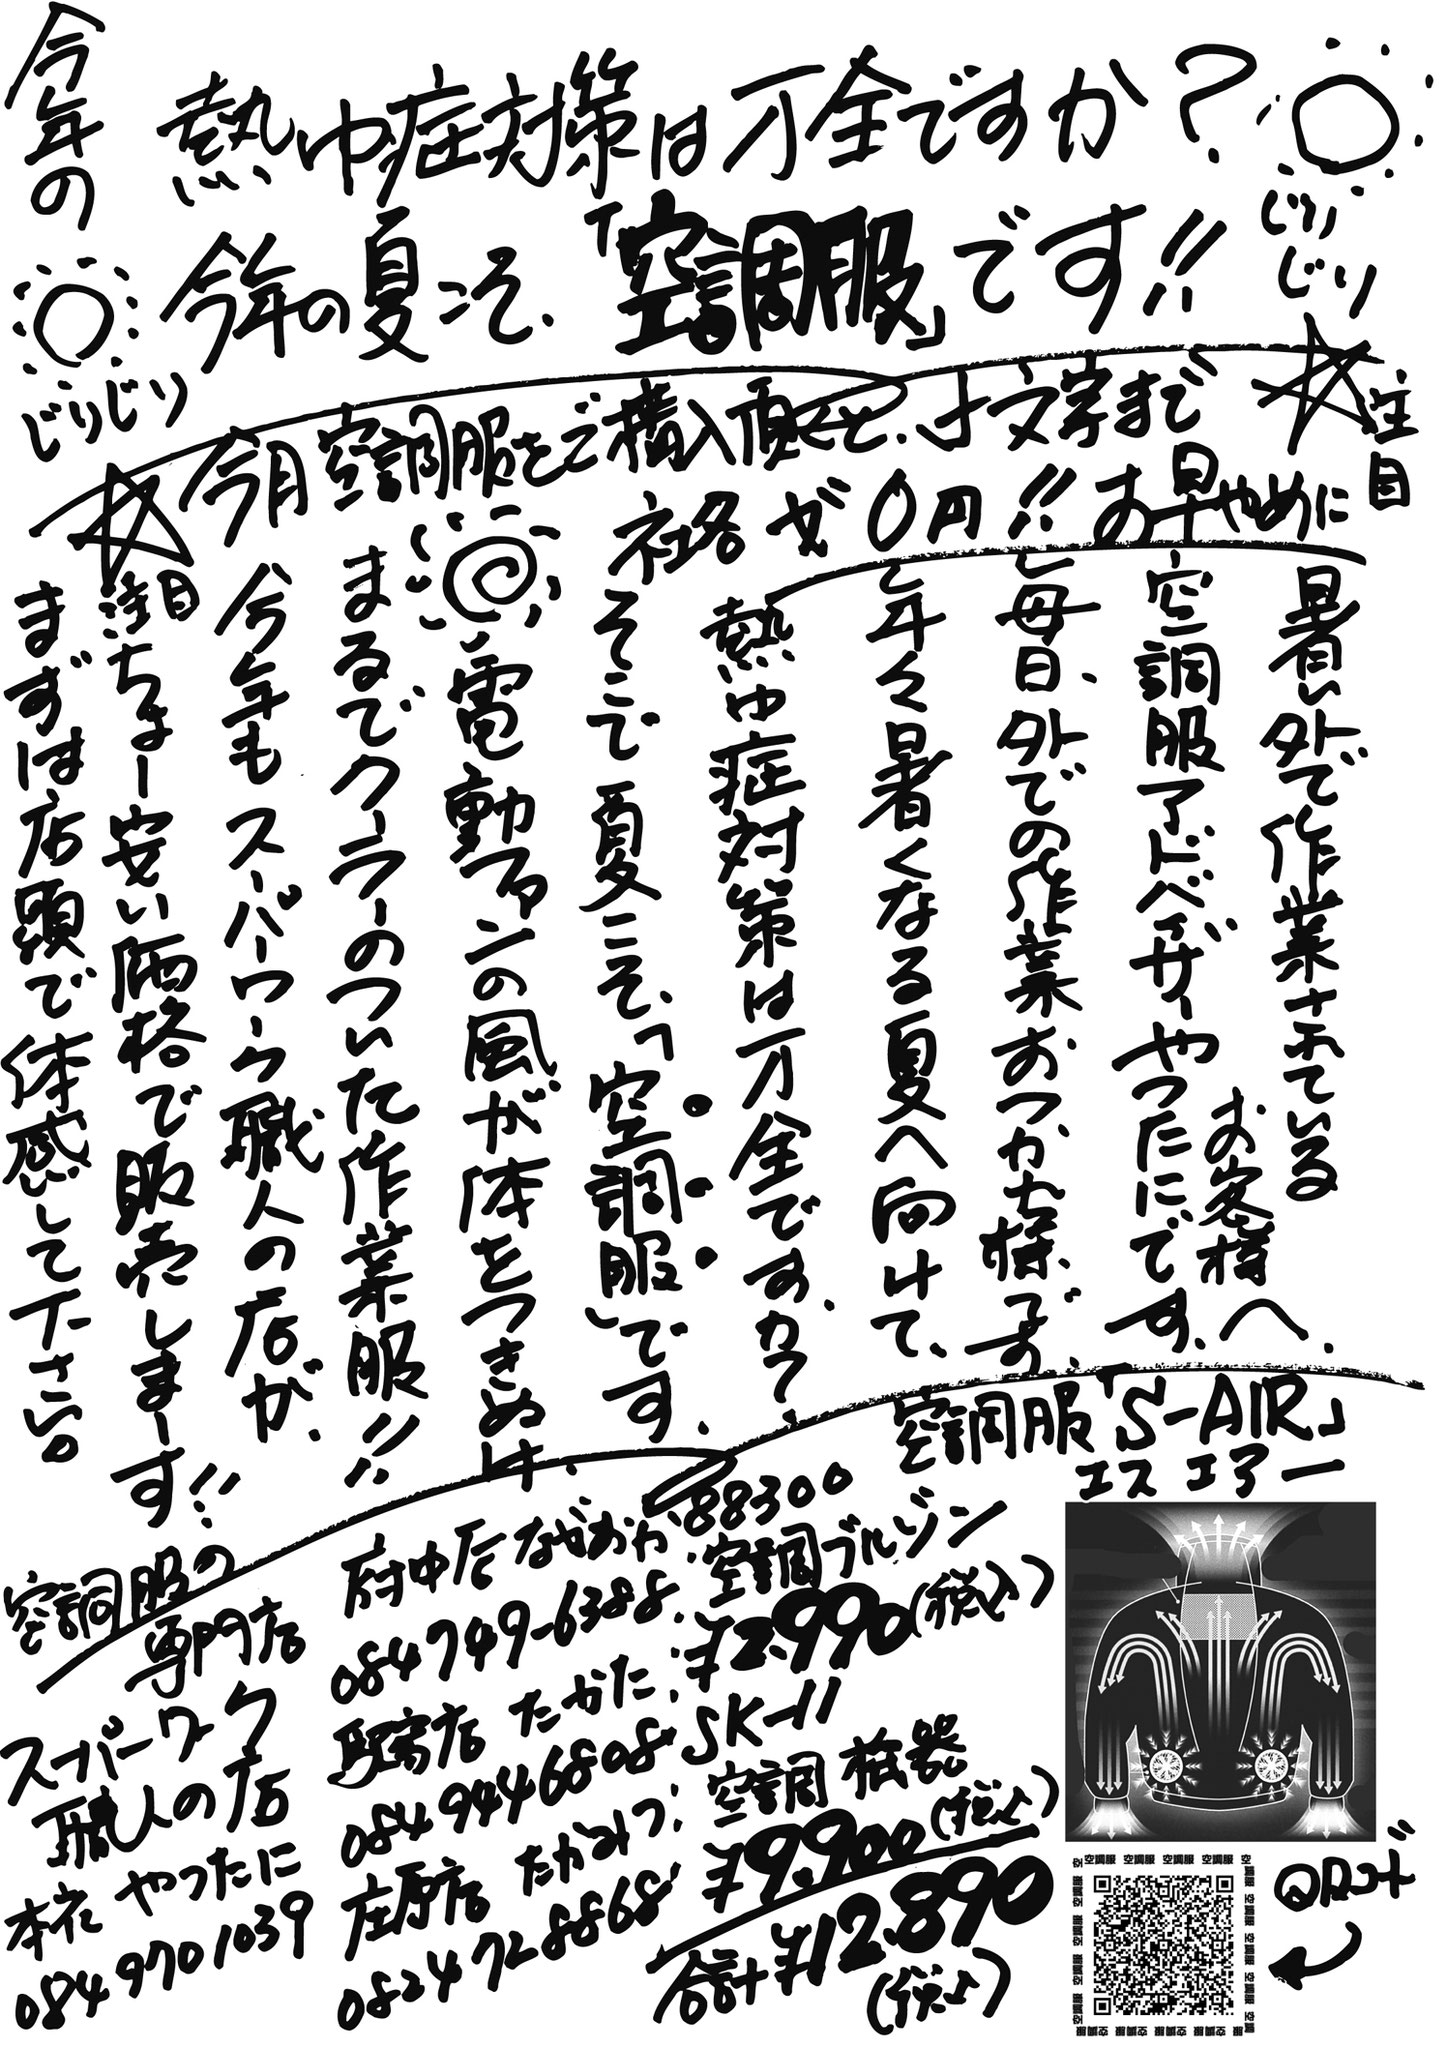 今年の
熱中症対策は万全ですか?
今年の夏こそ、「空調服」です!!
じりじり
じりじり
注目
今月空調服をご購入頂くと、ネ文字まで
社名が0円!! お早やめに
注目
暑い外で作業されている
お客様へ、
空調服アドバイザーやつたにです、
毎日、外での作業おつかれ様です、
年々暑くなる夏へ向けて、
熱中症対策は万全ですか?
そこで夏こそ、「空調服」です、
電動ファンの風が体をつきぬけ、
まるでクーラーのついた作業服!!
今年もスーパーワーク職人の店が、
ちょー安い価格で販売しまーす!!
まずは店頭で体感して下さい。
空調服「S-AIR」
エスエアー
88300
空調ブルゾン
¥2.990(税込)
SK-11
空調機器
¥9.900(税込)
合計¥12.890
(税込)
府中店 なかおか
084749-6388
駅家店 たかた
0849446808
庄原店 たかみつ
0824728868
空調服の
専門店
スーパーワーク
職人の店
本社 やつたに
0849701039
QRコード
空調服 空調服 空調服 空調服